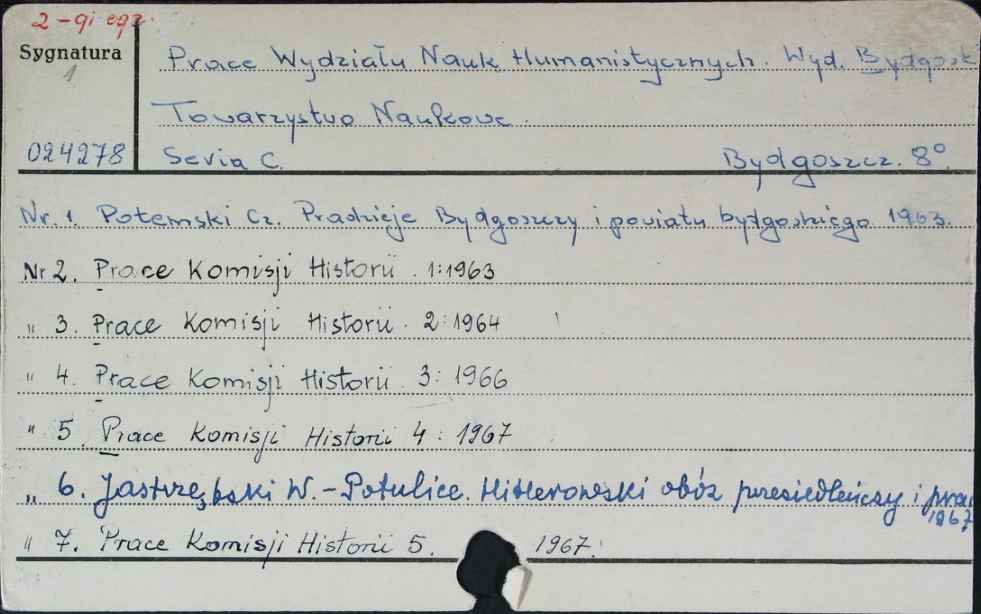 2-gi egz.
Sygnatura
1
Prace Wydziału Nauk Humanistycznych. Wyd. Bydgosk
Towarzystwo Naukowe.
024278
Seria C.
Bydgoszcz. 8°
Nr. 1. Potemski Cz. Pradzieje Bydgoszczy i powiatu bydgoskiego 1963.
Nr 2. Prace Komisji Historii. 1:1963
" 3. Prace Komisji Historii. 2:1964
" 4. Prace Komisji Historii. 3: 1966
" 5. Prace Komisji Historii 4: 1967
" 6. Jastrzębski W. - Potulice. Hitlerowski obóz przesiedleńczy i prac
1967
" 7. Prace Komisji Historii 5. 1967.